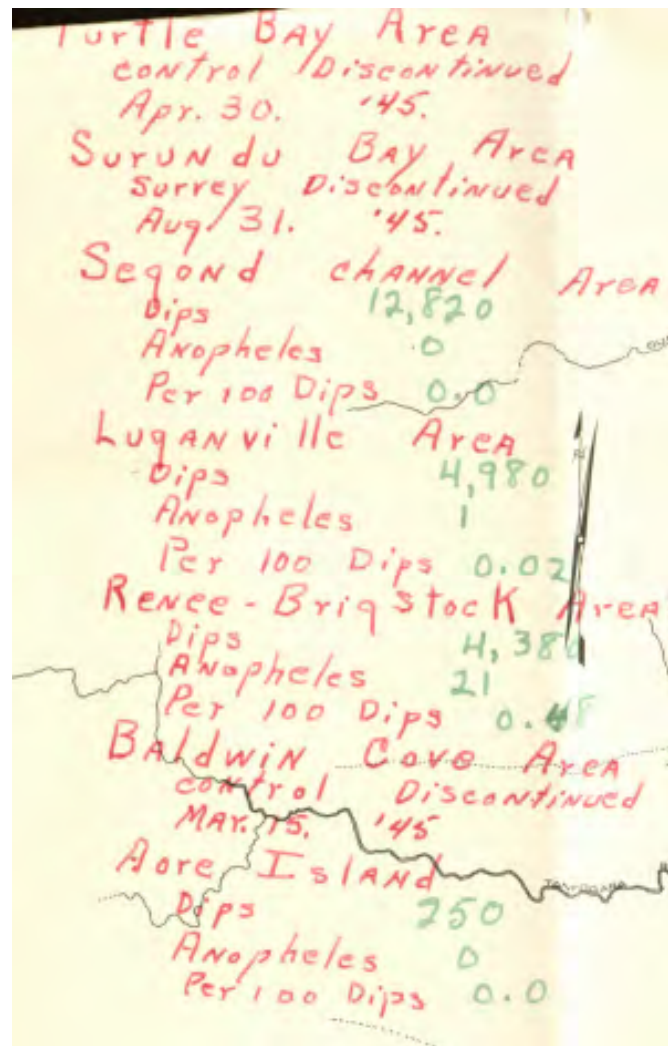 Turtle Bay Area
control Discontinued
Apr. 30. '45.
Surundu Bay Area
Survey Discontinued
Aug. 31. '45.
Segond channel Area
Dips 12,820
Anopheles 0
Per 100 Dips 0.0
Luganville Area
Dips 4,980
Anopheles 1
Per 100 Dips 0.02
Renee-Brigstock Area
Dips 4,380
Anopheles 21
Per 100 Dips 0.48
Baldwin Cove Area
control Discontinued
Mar. 15. '45
Aore Island
Dips 250
Anopheles 0
Per 100 Dips 0.0